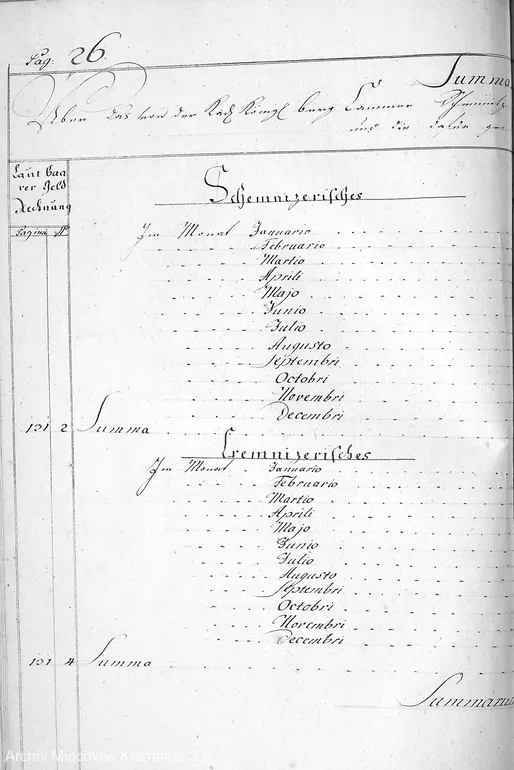 Pag: 26.
Summa
Über das von der Kay: Königl berg Cammer Schemnitz
und die dafür
Laut Baa
rer Geld
Rechnung
Pagina No
Schemnizerisches
Im Monat Januario
Februario
Martio
Aprili
Majo
Junio
Julio
Augusto
Septembri
Octobri
Novembri
Decembri
131 2 Summa
Cremnizerisches
Im Monat Januario
Februario
Martio
Aprili
Majo
Junio
Julio
Augusto
Septembri
Octobri
Novembri
Decembri
131 4 Summa
Summarum
Archív Mincovne Kremnica